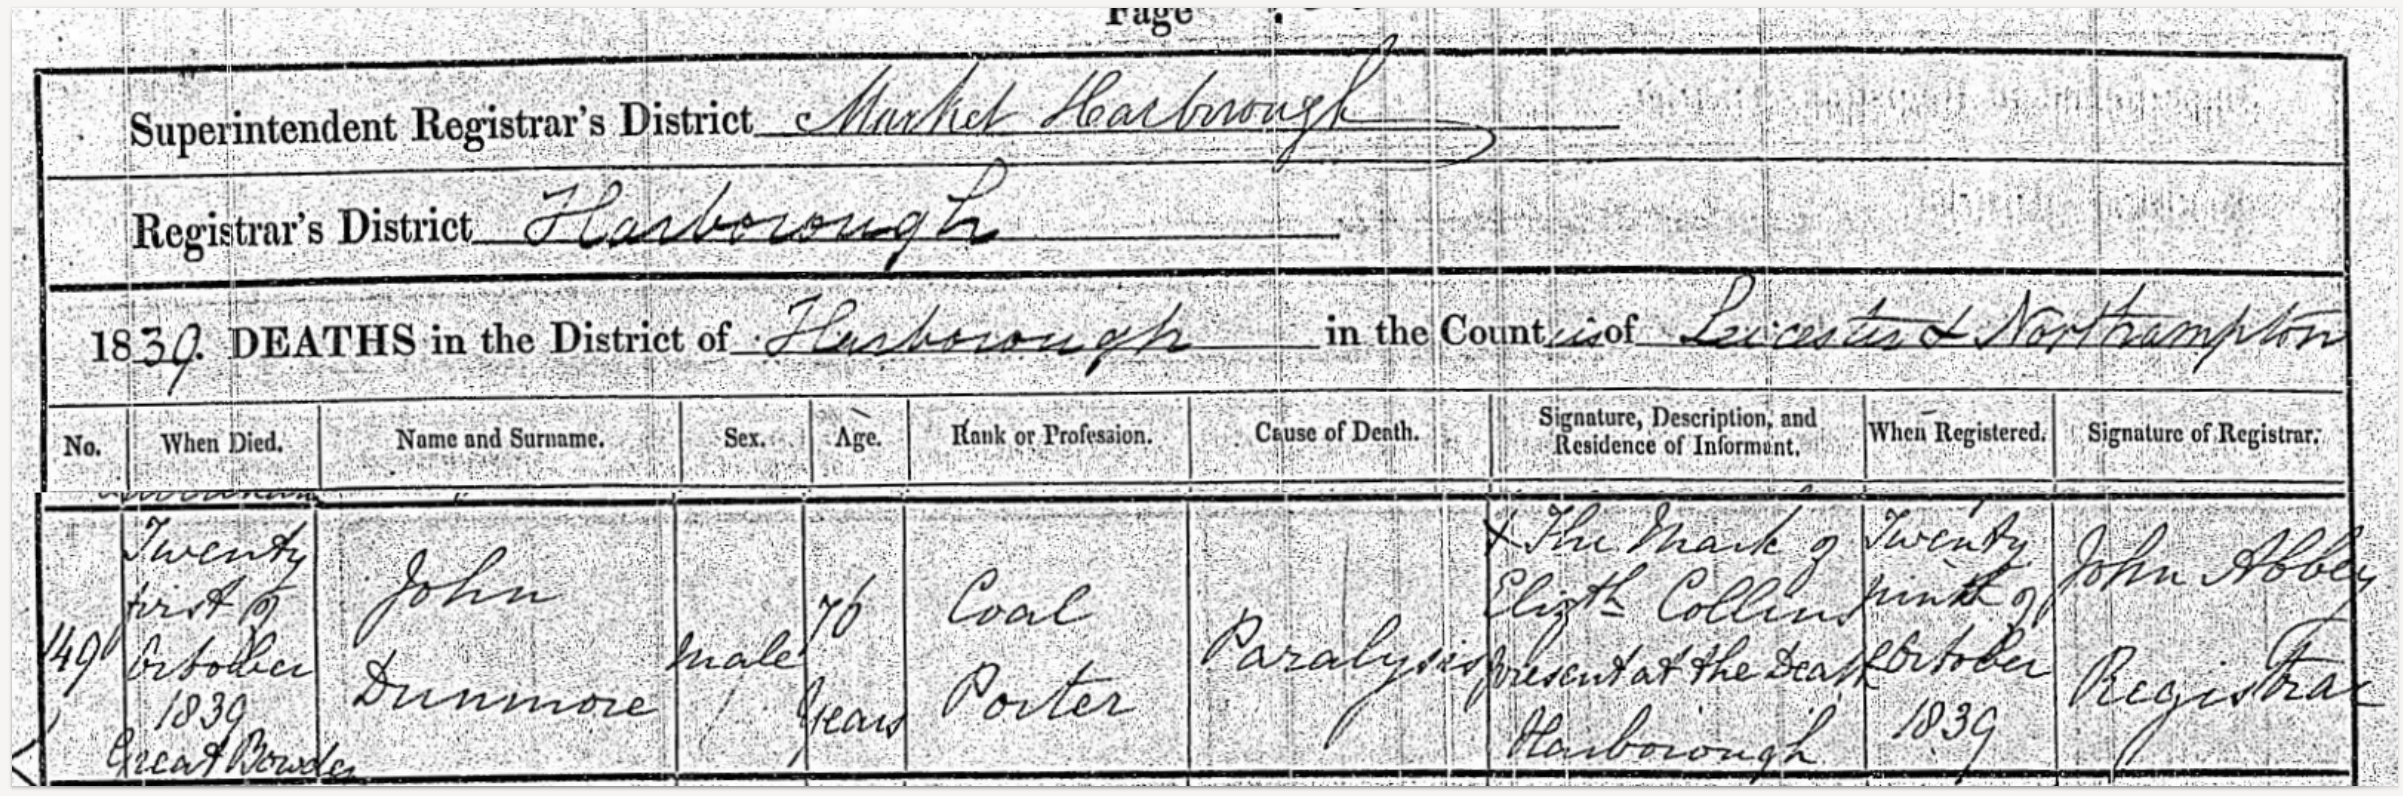 Page
Superintendent Registrar's District Market Harborough
Registrar's District Harborough
1839. DEATHS in the District of Harborough in the Counties of Leicester & Northampton
No. When Died. Name and Surname. Sex. Age. Rank or Profession. Cause of Death. Signature, Description, and Residence of Informant. When Registered. Signature of Registrar.
149
Twenty
first of
October
1839
Great Bowden
John
Dunmore
Male
76
Years
Coal
Porter
Paralysis
X The Mark of
Elizth Collins
present at the Death
Harborough
Twenty
ninth of
October
1839
John Abbey
Registrar